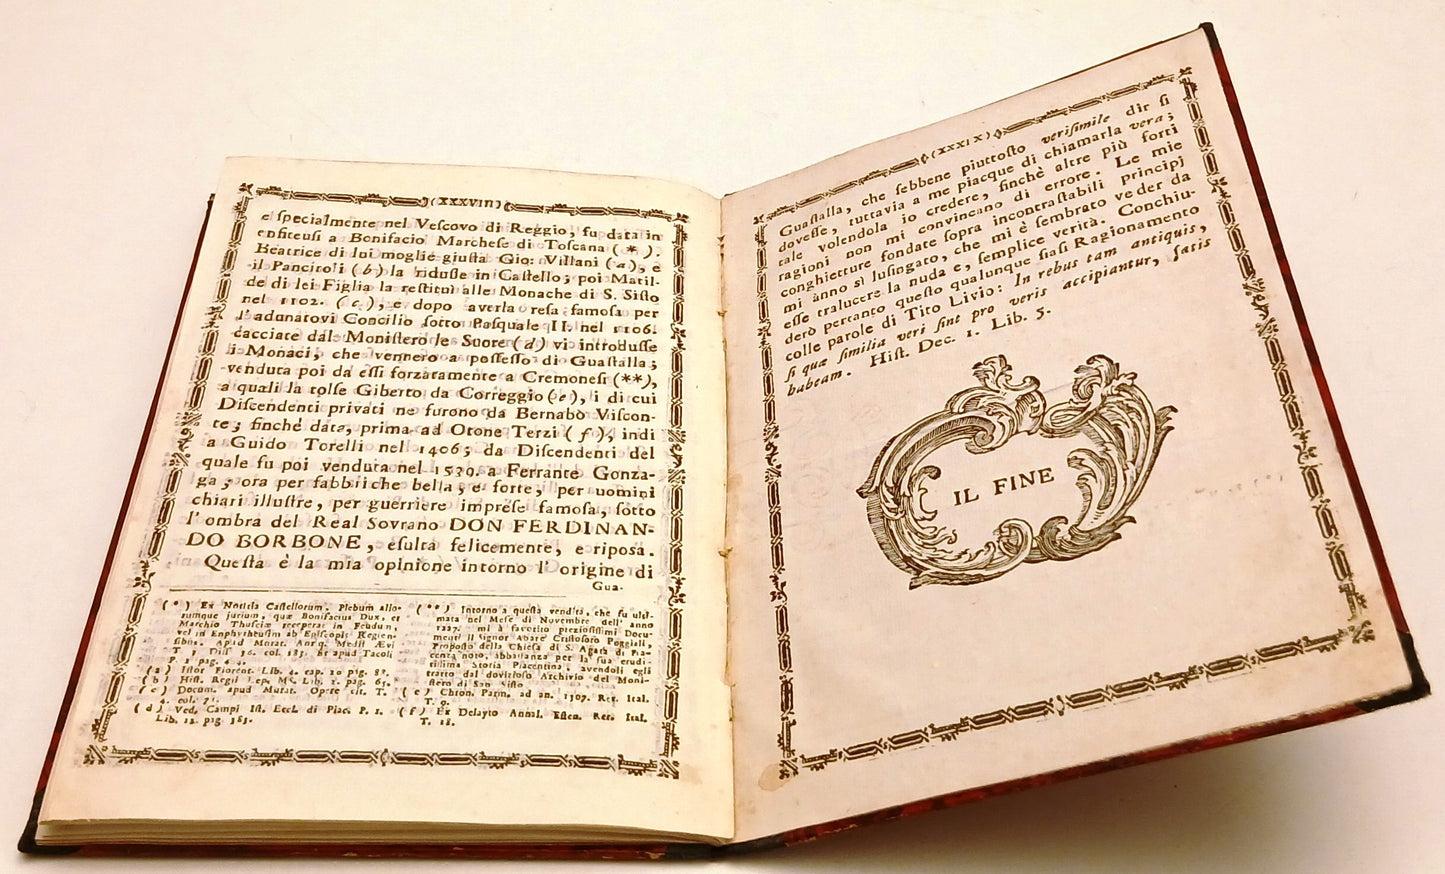 (XXXVIII)
e ſpecialmente nel Veſcovo di Reggio, fu data in
enfiteuſi a Bonifacio Marcheſe di Toſcana (*).
Beatrice di lui moglie giuſta Gio: Villani (a), e
il Panciroli (b) la riduſſe in Caſtello; poi Matil-
de di lei Figlia la reſtituì alle Monache di S. Siſto
nel 1102. (c), e dopo averla reſa famoſa per
l'adunatovi Concilio ſotto Paſquale II. nel 1106.
cacciate dal Moniſtero le Suore (d) vi introduſſe
i Monaci, che vennero a poſſeſſo di Guaſtalla;
venduta poi da eſſi forzatamente a Cremoneſi (**),
a quali la tolſe Giberto da Correggio (e), i di cui
Diſcendenti privati ne furono da Bernabò Viſcon-
te; finchè data, prima ad Otone Terzi (f), indi
a Guido Torelli nel 1406; da Diſcendenti del
quale fu poi venduta nel 1539. a Ferrante Gonza-
ga; ora per fabbriche bella, e forte, per uomini
chiari illuſtre, per guerriere impreſe famoſa, ſotto
l'ombra del Real Sovrano DON FERDINAN-
DO BORBONE, eſulta felicemente, e ripoſa.
Queſta è la mia opinione intorno l'origine di
Gua-
(*) Ex Notitia Caſtellorum, Plebum allo-
rumque jurium, quæ Bonifacius Dux, et
Marchio Thuſciæ receperat in Feudum,
vel in Enphyteuſim ab Epiſcopis Regien-
ſibus. Apud Murat. Antiq. Medii Ævi
T. 3 Diſſ 36. col. 183. Et apud Tacoli
P. 1 pag. 4.
(a) Iſtor Fiorent. Lib. 4. cap. 20 pag. 87.
(b) Hiſt. Regii Lep. Mſ. Lib. 1. pag. 65.
(c) Docum. apud Murat. Opere cit. T.
4. col. 71.
(d) Ved. Campi Iſt. Eccl. di Piac. P. 1.
Lib. 12. pag. 383.
(**) Intorno a queſta vendita, che fu ulti-
mata nel Meſe di Novembre dell' anno
1227. mi à favorito prezioſiſſimi Docu-
menti il Signor Abate Criſtoforo Poggiali,
Propoſto della Chieſa di S. Agata di Pia-
cenza noto, abbaſtanza per la ſua erudi-
tiſſima Storia Piacentina, avendoli egli
tratto dal dovizioſo Archivio del Moni-
ſtero di San Siſto
(e) Chron. Parm. ad an. 1307. Rer. Ital.
T. 9.
(f) Ex Delayto Annal. Eſten. Rer. Ital.
T. 18.
(XXXIX)
Guaſtalla, che ſebbene piuttoſto veriſimile dir ſi
doveſſe, tuttavia a me piacque di chiamarla vera;
tale volendola io credere, finchè altre più forti
ragioni non mi convincano di errore. Le mie
conghietture fondate ſopra inconſtraſtabili principj
mi ànno sì luſingato, che mi è ſembrato veder da
eſſe tralucere la nuda e, ſemplice verità. Conchiu-
derò pertanto queſto qualunque ſiaſi Ragionamento
colle parole di Tito Livio: In rebus tam antiquis,
ſi quæ ſimilia veri ſint pro veris accipiantur, ſatis
habeam. Hiſt. Dec. 1. Lib. 5.
IL FINE